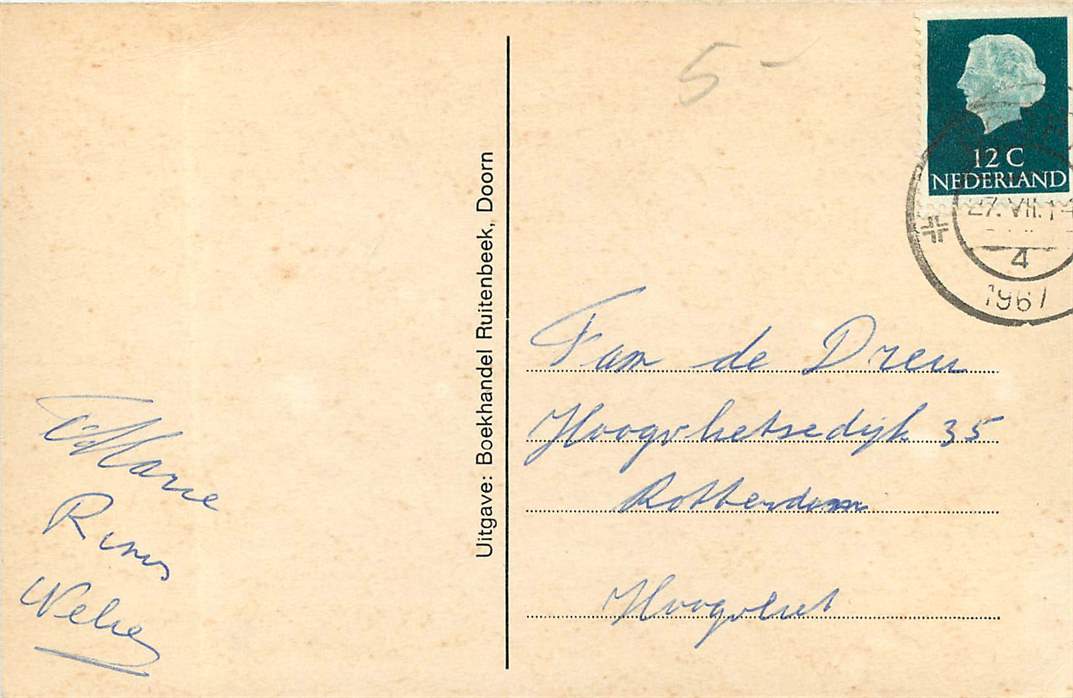 5-
12 C
NEDERLAND
27.VII.
4
1967
Uitgave: Boekhandel Ruitenbeek, Doorn
Fam de Dreu
Hoogvlietsedijk 35
Rotterdam
Hoogvliet
Marie
Rinus